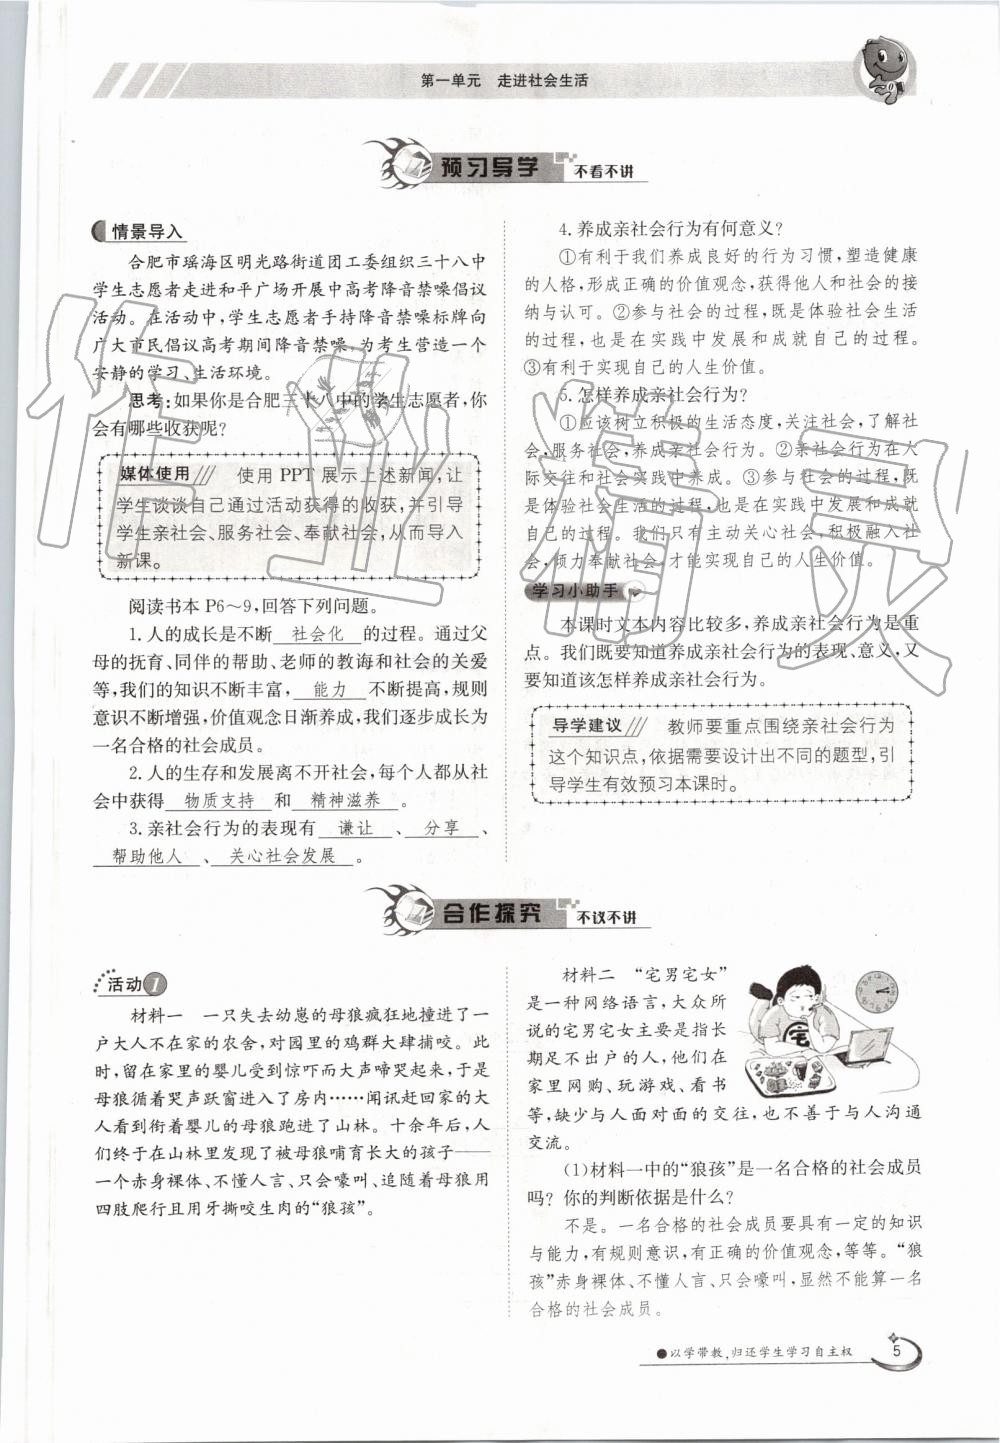 第一单元　走进社会生活
预习导学　不看不讲
情景导入
合肥市瑶海区明光路街道团工委组织三十八中
学生志愿者走进和平广场开展中高考降音禁噪倡议
活动。在活动中,学生志愿者手持降音禁噪标牌向
广大市民倡议高考期间降音禁噪,为考生营造一个
安静的学习、生活环境。
思考:如果你是合肥三十八中的学生志愿者,你
会有哪些收获呢?
媒体使用　使用 PPT 展示上述新闻,让
学生谈谈自己通过活动获得的收获,并引导
学生亲社会、服务社会、奉献社会,从而导入
新课。
阅读书本 P6～9,回答下列问题。
1. 人的成长是不断 社会化 的过程。通过父
母的抚育、同伴的帮助、老师的教诲和社会的关爱
等,我们的知识不断丰富, 能力 不断提高,规则
意识不断增强,价值观念日渐养成,我们逐步成长为
一名合格的社会成员。
2. 人的生存和发展离不开社会,每个人都从社
会中获得 物质支持 和 精神滋养 。
3. 亲社会行为的表现有 谦让 、 分享 、
帮助他人 、 关心社会发展 。
4. 养成亲社会行为有何意义?
①有利于我们养成良好的行为习惯,塑造健康
的人格,形成正确的价值观念,获得他人和社会的接
纳与认可。②参与社会的过程,既是体验社会生活
的过程,也是在实践中发展和成就自己的过程。
③有利于实现自己的人生价值。
5. 怎样养成亲社会行为?
①应该树立积极的生活态度,关注社会,了解社
会,服务社会,养成亲社会行为。②亲社会行为在人
际交往和社会实践中养成。③参与社会的过程,既
是体验社会生活的过程,也是在实践中发展和成就
自己的过程。我们只有主动关心社会,积极融入社
会,倾力奉献社会,才能实现自己的人生价值。
学习小助手
本课时文本内容比较多,养成亲社会行为是重
点。我们既要知道养成亲社会行为的表现、意义,又
要知道该怎样养成亲社会行为。
导学建议　教师要重点围绕亲社会行为
这个知识点,依据需要设计出不同的题型,引
导学生有效预习本课时。
合作探究　不议不讲
活动1
材料一　一只失去幼崽的母狼疯狂地撞进了一
户大人不在家的农舍,对园里的鸡群大肆捕咬。此
时,留在家里的婴儿受到惊吓而大声啼哭起来,于是
母狼循着哭声跃窗进入了房内……闻讯赶回家的大
人看到衔着婴儿的母狼跑进了山林。十余年后,人
们终于在山林里发现了被母狼哺育长大的孩子——
一个赤身裸体、不懂人言、只会嚎叫、追随着母狼用
四肢爬行且用牙撕咬生肉的“狼孩”。
材料二　“宅男宅女”
是一种网络语言,大众所
说的宅男宅女主要是指长
期足不出户的人,他们在
家里网购、玩游戏、看书
等,缺少与人面对面的交往,也不善于与人沟通
交流。
宅
(1)材料一中的“狼孩”是一名合格的社会成员
吗? 你的判断依据是什么?
不是。一名合格的社会成员要具有一定的知识
与能力,有规则意识,有正确的价值观念,等等。“狼
孩”赤身裸体、不懂人言、只会嚎叫,显然不能算一名
合格的社会成员。
●以学带教,归还学生学习自主权
5
作业精灵